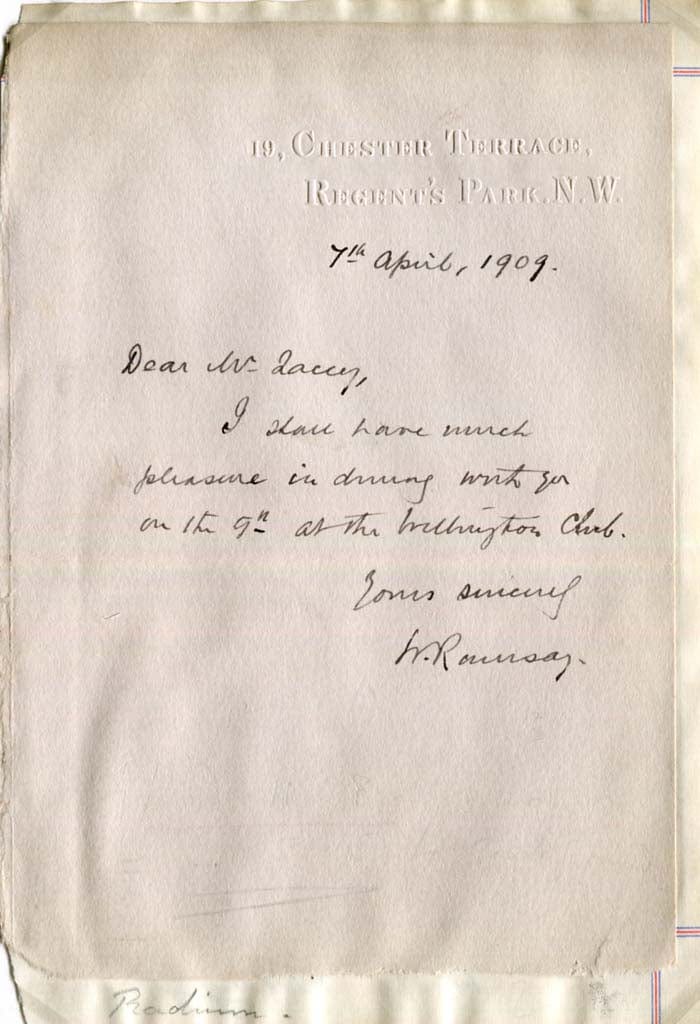 19, CHESTER TERRACE,
REGENT'S PARK. N.W.
7th April, 1909.
Dear Mr Lacey,
I shall have much
pleasure in dining with you
on the 9th at the Wellington Club.
Yours sincerely
W. Ramsay.
Radium.